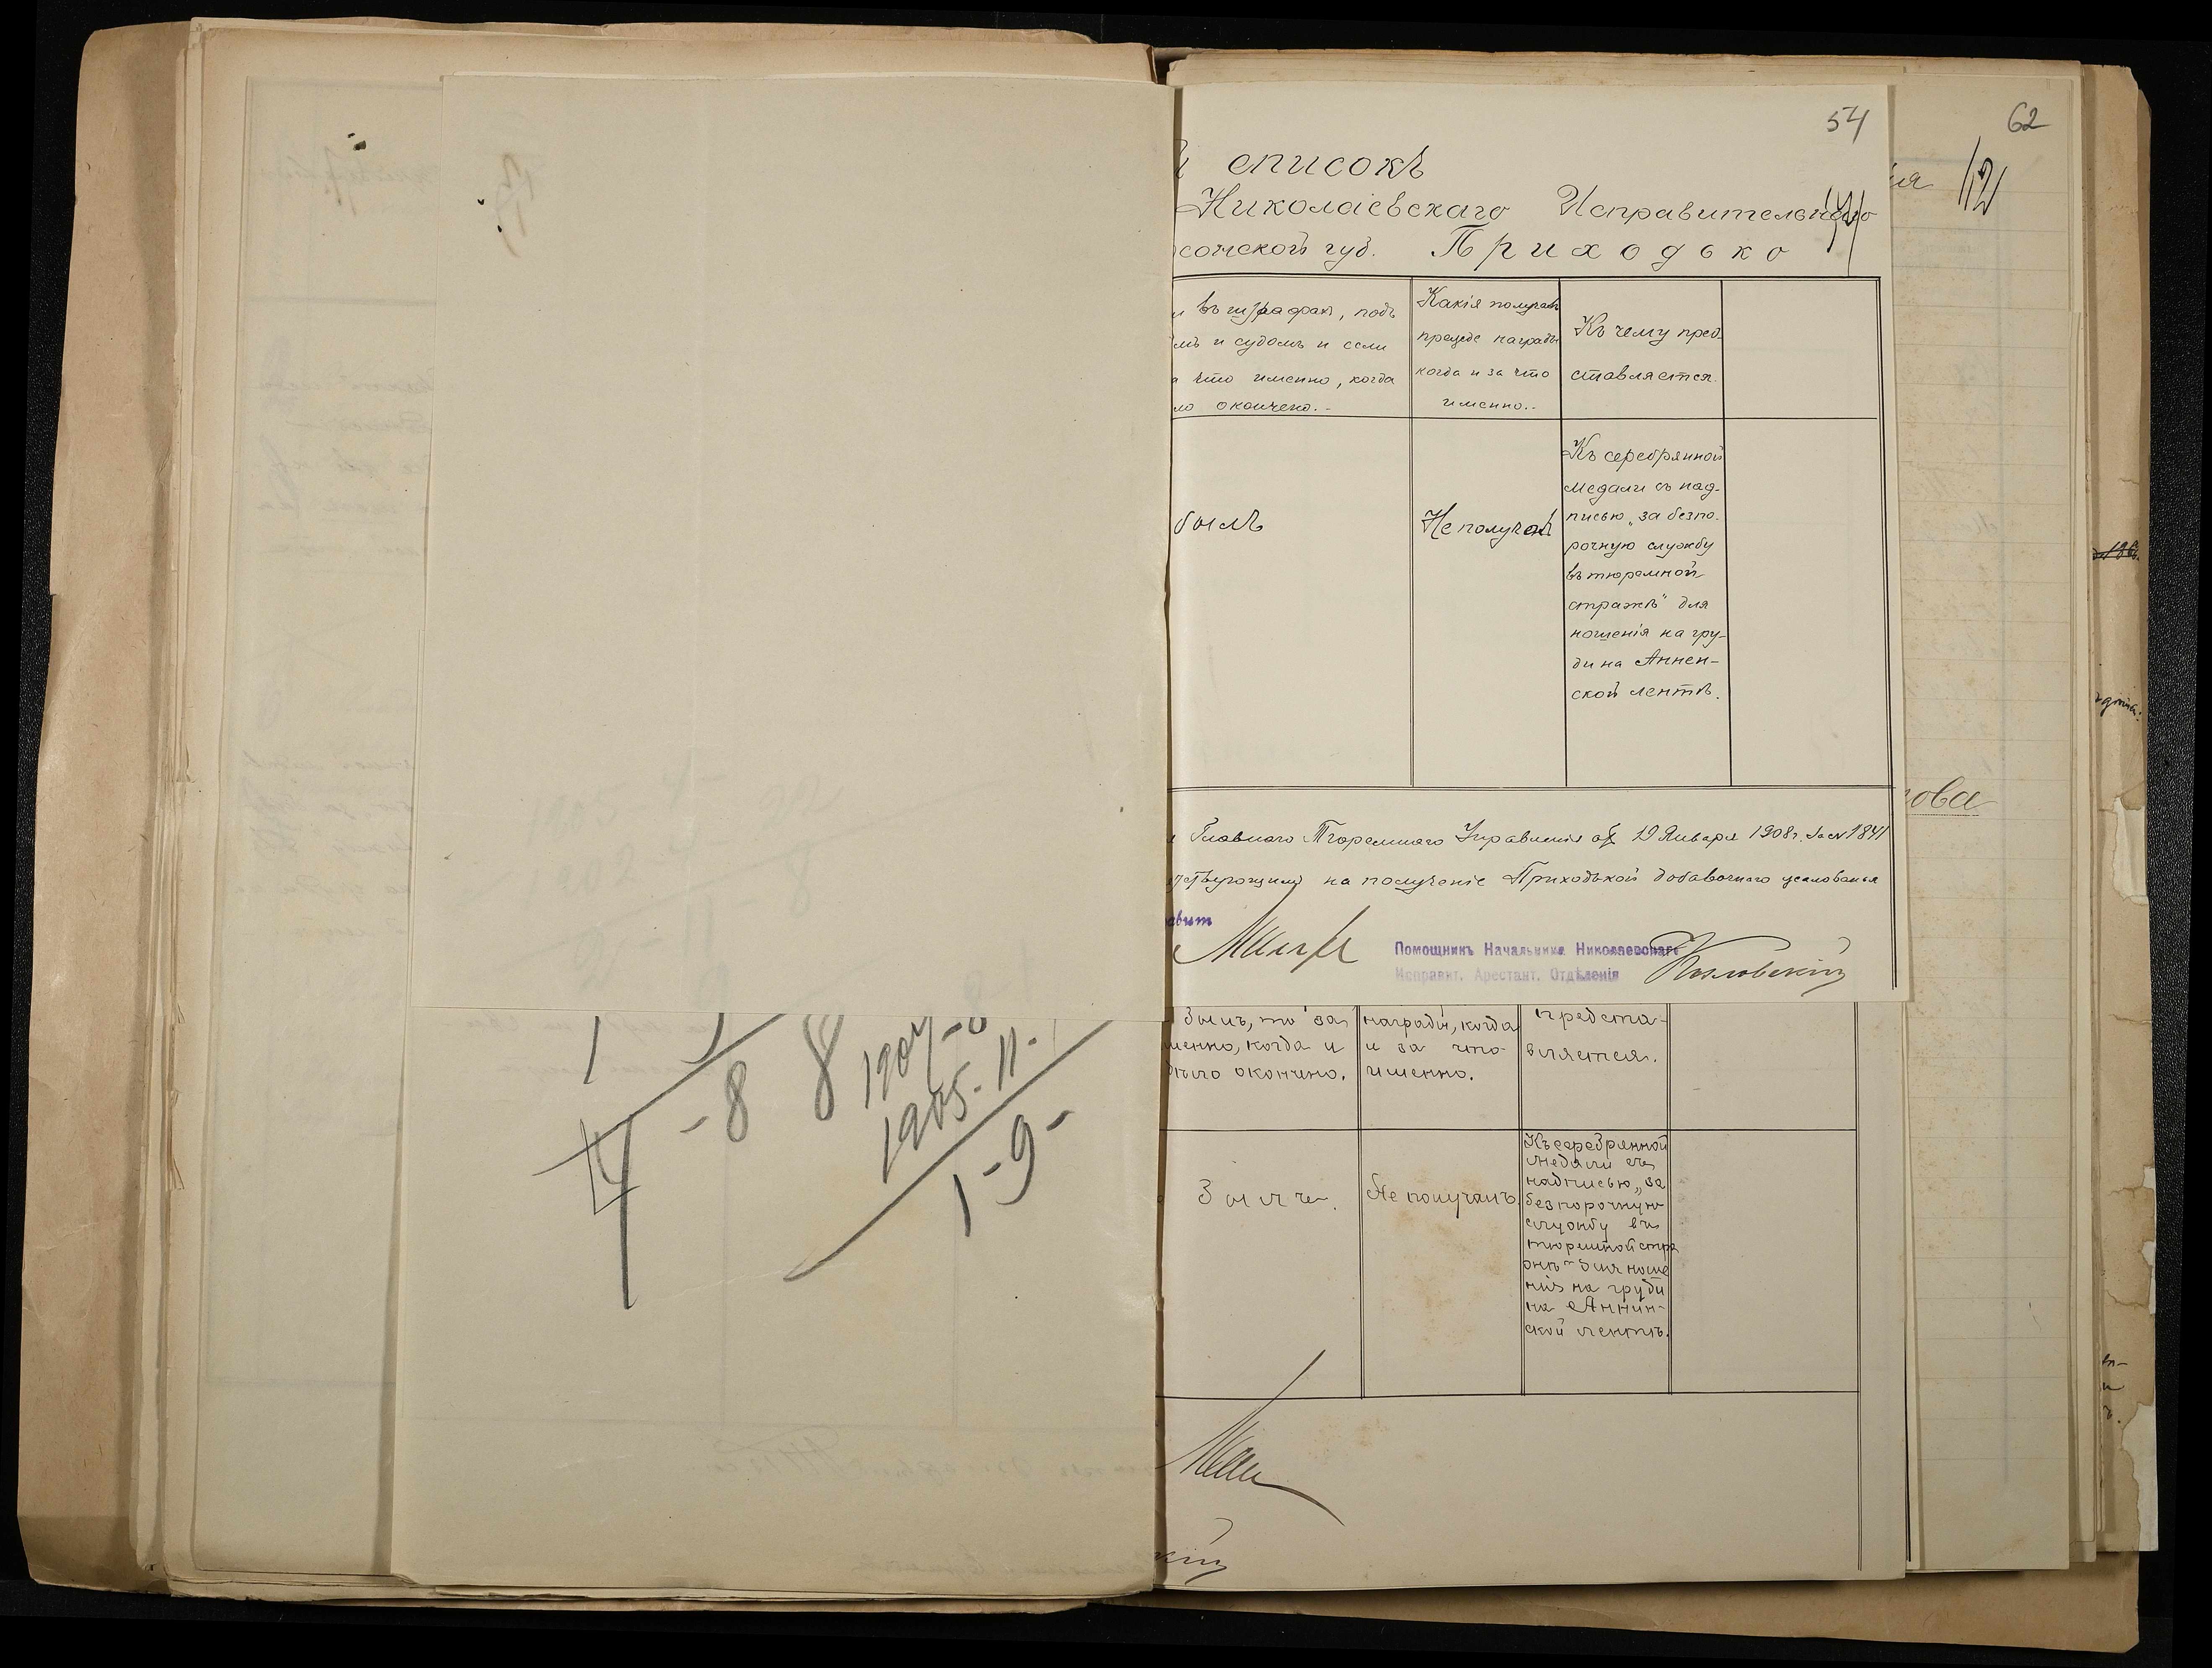 54
62
списокъ
Николаевскаго Исправительнаго
сонской губ. Приходько
въ штрафахъ, подъ
мъ и судомъ и если
а что именно, когда
ло окончено.-
Какія получалъ
прежде награды
когда и за что
именно.-
Къ чему пред-
ставляется.
былъ
Не получалъ
Къ серебрянной
медали съ над-
писью „за безпо-
рочную службу
въ тюремной
стражѣ" для
ношенія на гру-
ди на Аннен-
ской лентѣ.
Главнаго Тюремнаго Управленія отъ 19 Января 1908 г. за № 1841
ствующимъ на полученіе Приходькой добавочнаго жалованья
Помощникъ Начальника Николаевскаго
Исправит. Арестант. Отдѣленія
Козловскій
былъ, то за
менно, когда и
было окончено.
награды, когда
и за что
именно.
предста-
вляется.
былъ.
Не получалъ.
Къ серебрянной
медали съ
надписью „за
безпорочную
службу въ
тюремной стра
жѣ" для ноше
нія на груди
на Аннин-
ской лентѣ.
кій
ова
4 - 8
8
1907-8
1905-11.
1-9-